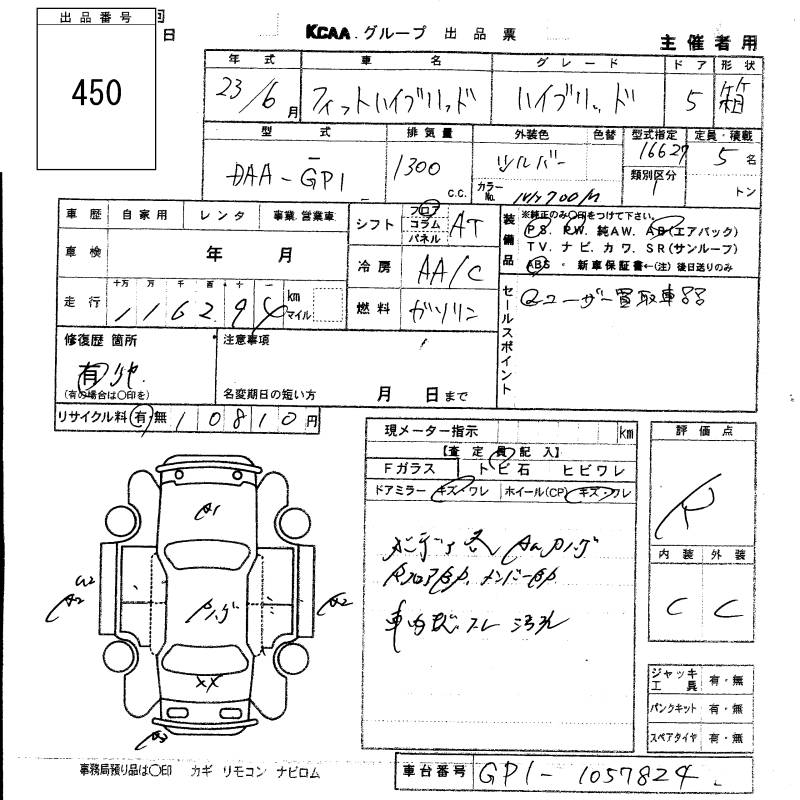 出品番号
450
日
KCAA グループ 出品票
主催者用
年式 車名 グレード ドア 形状
23/6月 フィットハイブリッド ハイブリッド 5 箱
型式 排気量 外装色 色替 型式指定 定員・積載
DAA-GP1 1300 c.c. シルバー 16627 5名
カラーNo. NH700M 類別区分 1 トン
車歴 自家用 レンタ 事業.営業車
シフト フロア コラム パネル AT
装備品 ※純正のみ〇印をつけて下さい。
PS. PW. 純AW. AB(エアバック)
TV. ナビ. カワ. SR(サンルーフ)
ABS ・ 新車保証書←(注)後日送りのみ
車検 年 月
冷房 AA/C
走行 十万 万 千 百 十 km マイル
116294
燃料 ガソリン
セールスポイント
ユーザー買取車
修復歴 箇所
有
(有の場合は〇印を)
注意事項
名変期日の短い方 月 日まで
リサイクル料 有・無 10810円
現メーター指示 km
【査定員記入】
Fガラス トビ石 ヒビワレ
ドアミラー キズ・ワレ ホイール(CP) キズ・ワレ
評価点
R
内装 外装
C C
A1
A2
A2
XX
ジャッキ工具 有・無
パンクキット 有・無
スペアタイヤ 有・無
事務局預り品は〇印 カギ リモコン ナビロム
車台番号 GP1-1057824